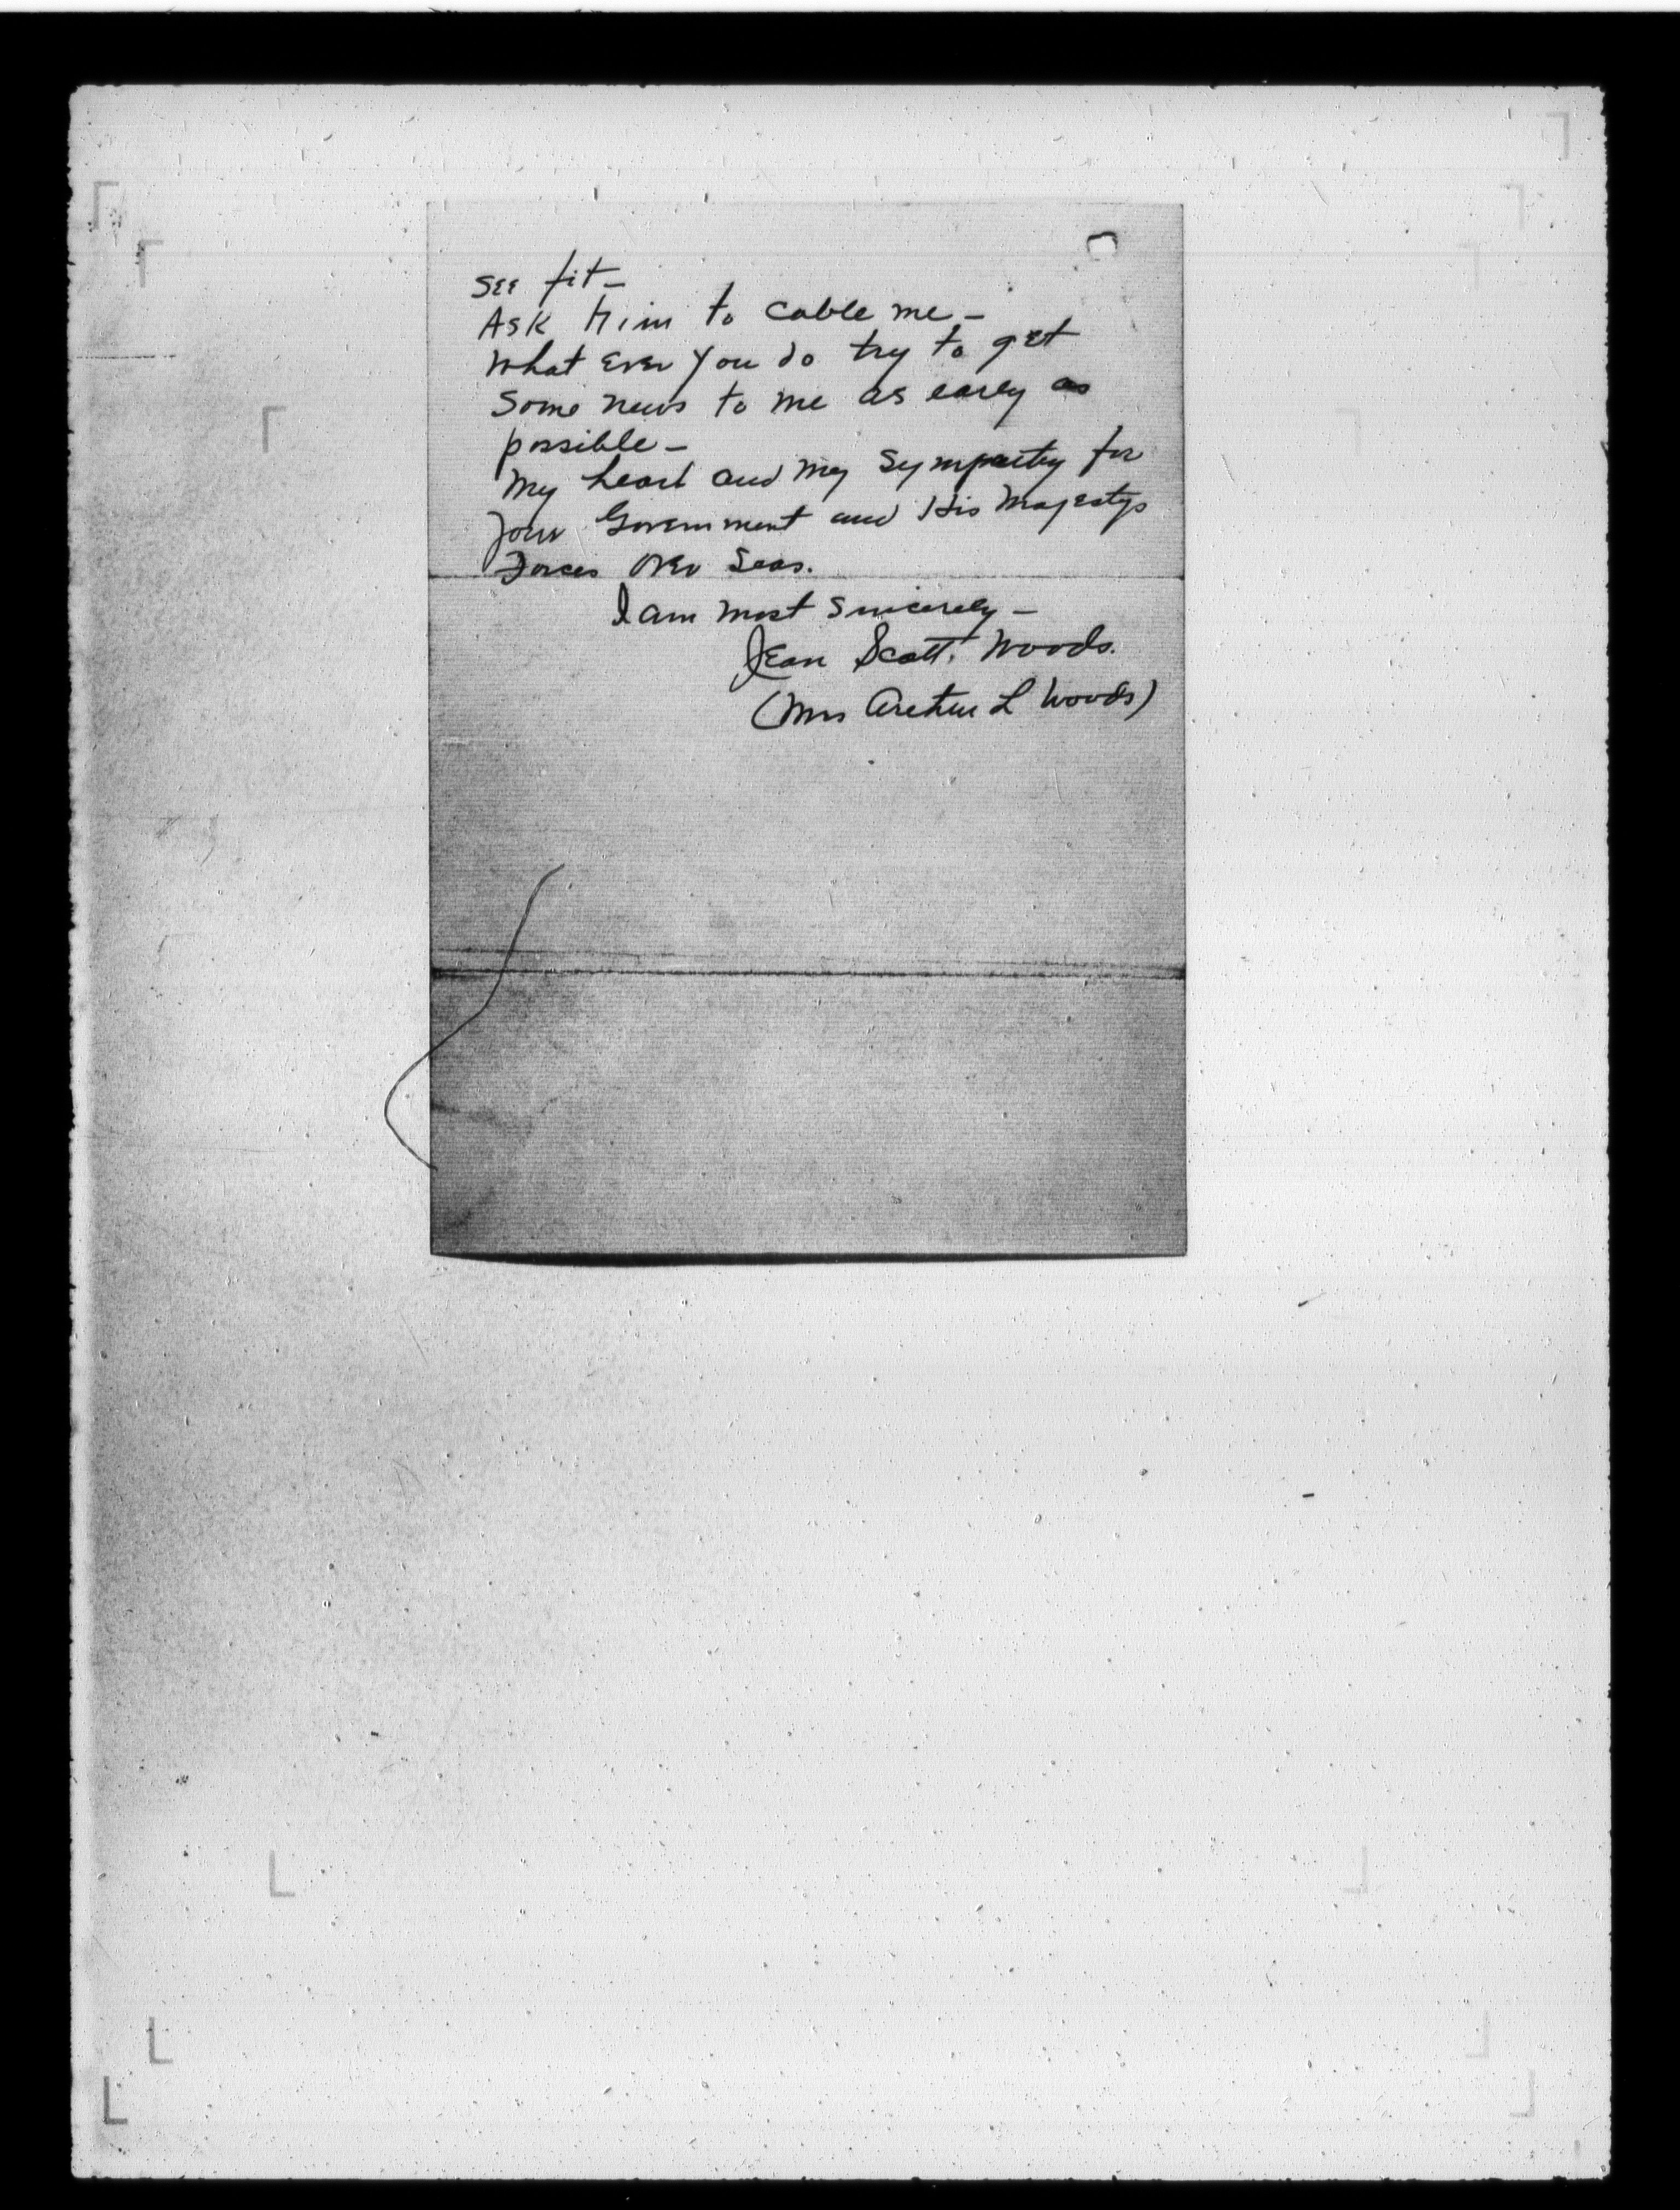 see fit -
Ask Him to cable me -
What Ever You do try to get
some news to me as early as
possible -
My heart and my sympathy for
your Government and His Majestys
Forces Over Seas.
I am most sincerely -
Jean Scott. Woods.
(Mrs Arthur L Woods)